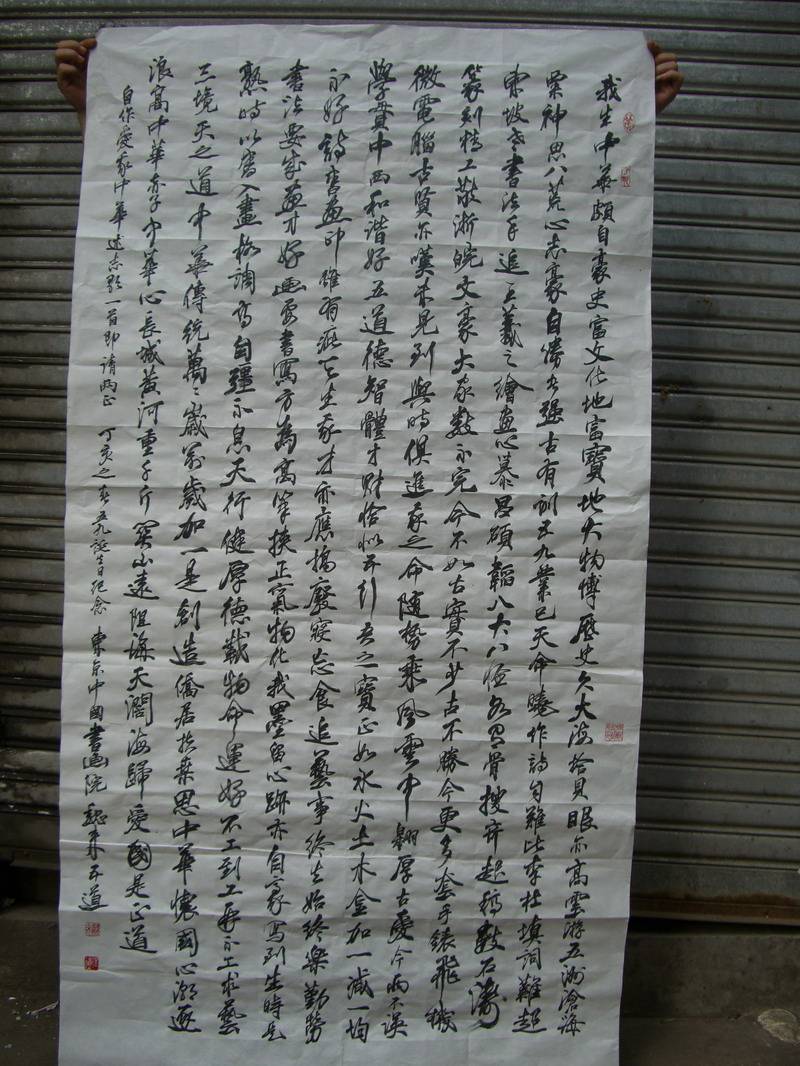 我生中华颇自豪史富文化地富寳地大物博歷史久大海拾貝眼亦高雲游五洲滄海
栗神思八荒心志豪自學發强古有訓五九業已天命曉作詩句難比李杜填詞難超
東坡老書法手追王羲之繪畫心慕吕碩韜八大八怪
篆刻精工敬浙皖文豪大家數不完今不如古實不少古不勝今更多套手錶飛機
微電腦古賢亦嘆未見到與時俱進家之命隨勢乘風雲中翱厚古愛今兩不誤
學貫中西和諧好五道德智體才財恰似五行之寳正如水火土木金加一减一均
不好詩書畫印雖有疵天生我才亦應搞廢寝忘食追藝事終生始終樂勤勞
書法要家畫才好畫要書寫方為高筆挾正氣物化我墨留心跡亦自豪寫到生時是
熟時以書入畫格調高自彊不息天行健厚德載物命運好不工到工再不工求藝
三境天之道中華傳統萬萬歲萬歲加一是創造僑居扶桑思中華懷國心潮逐
浪高中華赤子中華心長城黄河重千斤關山遠阻海天濶海歸愛國是正道
自作愛我中華述志歌一首即請两正 丁亥之春五九誕生日纪念 東京中國書画院 魏 五道